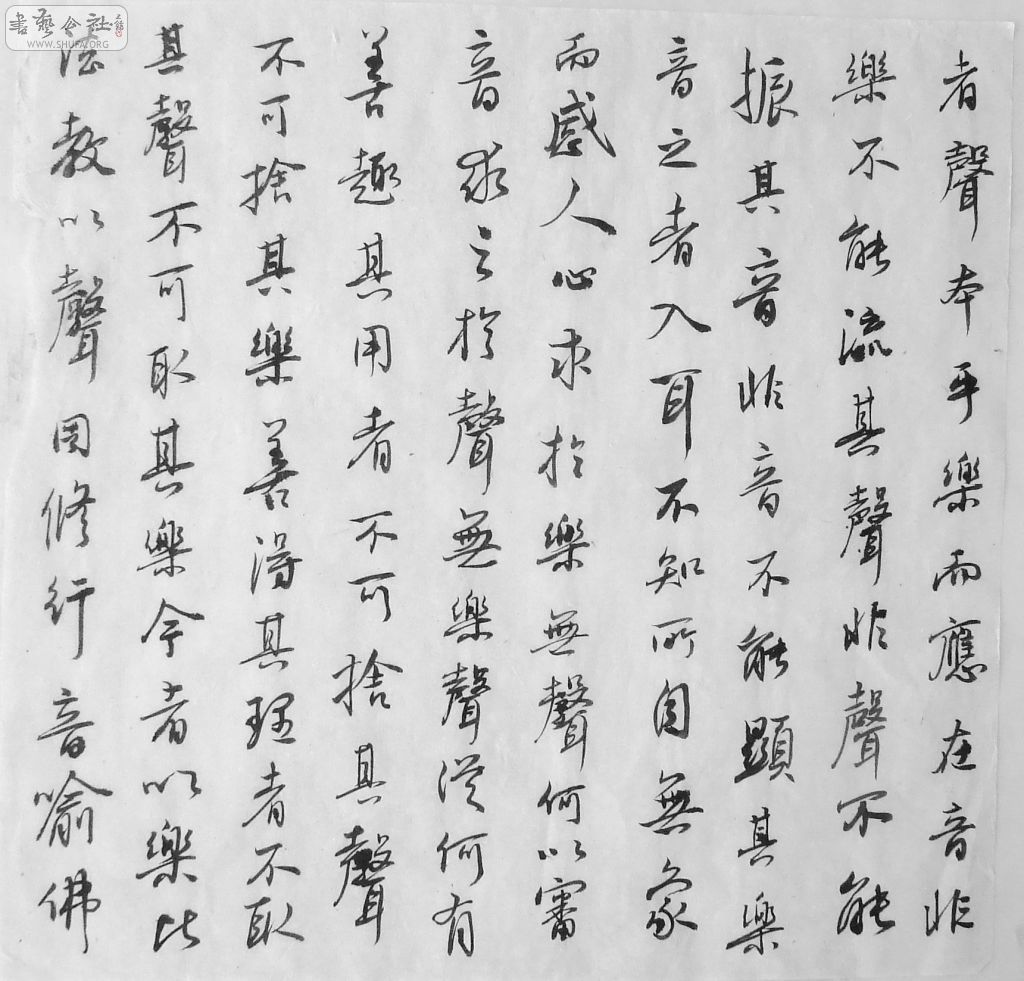 者聲本乎樂而應在音非
樂不能流其聲非聲不能
振其音非音不能顯其樂
音之者入耳不知所自無象
而感人心求於樂無聲何以審
音求之於聲無樂聲從何有
善趣其用者不可捨其聲
不可捨其樂善得其理者不取
其聲不可取其樂今者以樂比
法教以聲因修行音喻佛
書藝公社
WWW.SHUFA.ORG